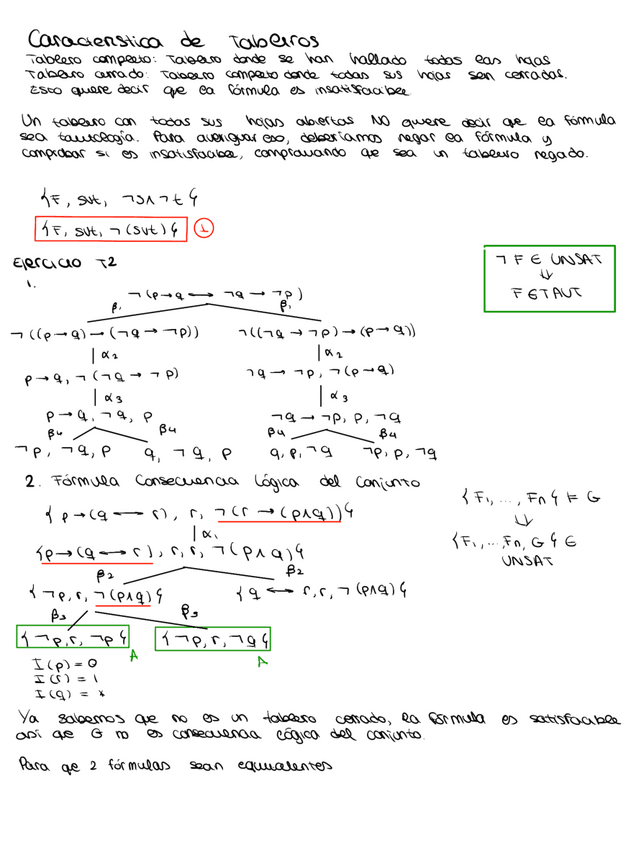 Característica de Tableros
Tablero completo: Tablero donde se han hallado todas las hojas
Tablero cerrado: Tablero completo donde todas sus hojas sen cerradas.
Esto quere decir que la fórmula es insatisfacible.
Un tablero con todas sus hojas abiertas NO quiere decir que la fórmula
sea tautología. Para averiguar eso, deberíamos negar la fórmula y
comprobar si es insatisfacible, comprovando que sea un tablero negado.
{F, s∨t, ¬s∧¬t}
{F, s∨t, ¬(s∨t)} ①
Ejercicio T2
¬F ∈ UNSAT
⇓
F ∈ TAUT
1.
¬(p→q ⟷ ¬q → ¬p)
β₁ β₁
¬((p→q)→(¬q → ¬p)) ¬((¬q → ¬p)→(p→q))
α₂ α₂
p→q, ¬(¬q → ¬p) ¬q → ¬p, ¬(p→q)
α₃ α₃
p→q, ¬q, p ¬q → ¬p, p, ¬q
β₄ β₄ β₄ β₄
¬p, ¬q, p q, ¬q, p q, p, ¬q ¬p, p, ¬q
2. Fórmula Consecuencia Lógica del Conjunto
{p→(q ⟷ r), r, ¬(r → (p∧q))}
α₁
{p→(q ⟷ r), r, r, ¬(p∧q)}
β₂ β₂
{¬p, r, ¬(p∧q)} {q ⟷ r, r, ¬(p∧q)}
β₃ β₃
{¬p, r, ¬p} {¬p, r, ¬q}
A A
{F₁, ..., Fn} ⊨ G
⇓
{F₁, ..., Fn, G} ∈
UNSAT
I(p) = 0
I(r) = 1
I(q) = *
Ya sabemos que no es un tablero cerrado, la fórmula es satisfacible
asi que G no es consecuencia lógica del conjunto.
Para qe 2 fórmulas sean equivalentes